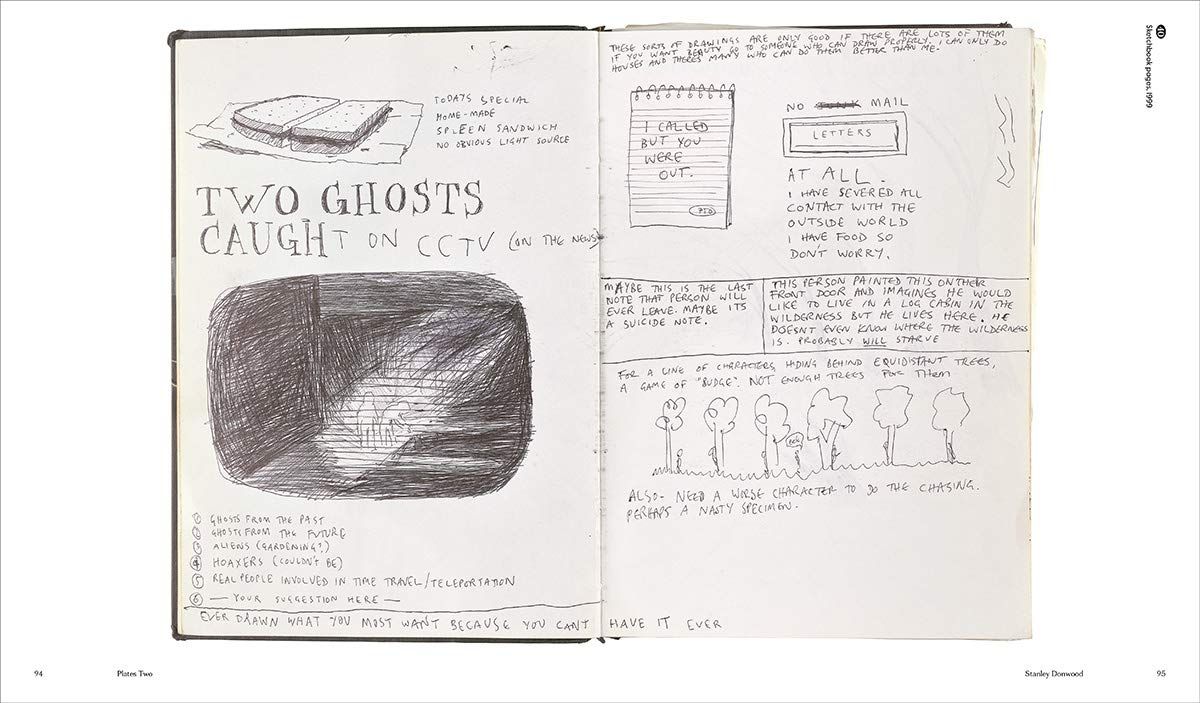 TODAYS SPECIAL
HOME-MADE
SPLEEN SANDWICH
NO OBVIOUS LIGHT SOURCE
TWO GHOSTS
CAUGHT ON CCTV (ON THE NEWS)
① GHOSTS FROM THE PAST
② GHOSTS FROM THE FUTURE
③ ALIENS (GARDENING?)
④ HOAXERS (COULDN'T BE)
⑤ REAL PEOPLE INVOLVED IN TIME TRAVEL/TELEPORTATION
⑥ — YOUR SUGGESTION HERE —
EVER DRAWN WHAT YOU MOST WANT BECAUSE YOU CANT HAVE IT EVER
THESE SORTS OF DRAWINGS ARE ONLY GOOD IF THERE ARE LOTS OF THEM
IF YOU WANT BEAUTY GO TO SOMEONE WHO CAN DRAW PROPERLY. I CAN ONLY DO
HOUSES AND THERES MANY WHO CAN DO THEM BETTER THAN ME.
I CALLED
BUT YOU
WERE
OUT.
NO JUNK MAIL
LETTERS
AT ALL.
I HAVE SEVERED ALL
CONTACT WITH THE
OUTSIDE WORLD
I HAVE FOOD SO
DON'T WORRY.
MAYBE THIS IS THE LAST
NOTE THAT PERSON WILL
EVER LEAVE. MAYBE ITS
A SUICIDE NOTE.
THIS PERSON PAINTED THIS ON THEIR
FRONT DOOR AND IMAGINES HE WOULD
LIKE TO LIVE IN A LOG CABIN IN THE
WILDERNESS BUT HE LIVES HERE. HE
DOESNT EVEN KNOW WHERE THE WILDERNESS
IS. PROBABLY WILL STARVE
FOR A LINE OF CHARACTERS HIDING BEHIND EQUIDISTANT TREES,
A GAME OF "BUDGE". NOT ENOUGH TREES FOR THEM
ALSO- NEED A WORSE CHARACTER TO DO THE CHASING.
PERHAPS A NASTY SPECIMEN.
Sketchbook pages, 1999
94
Plates Two
Stanley Donwood
95